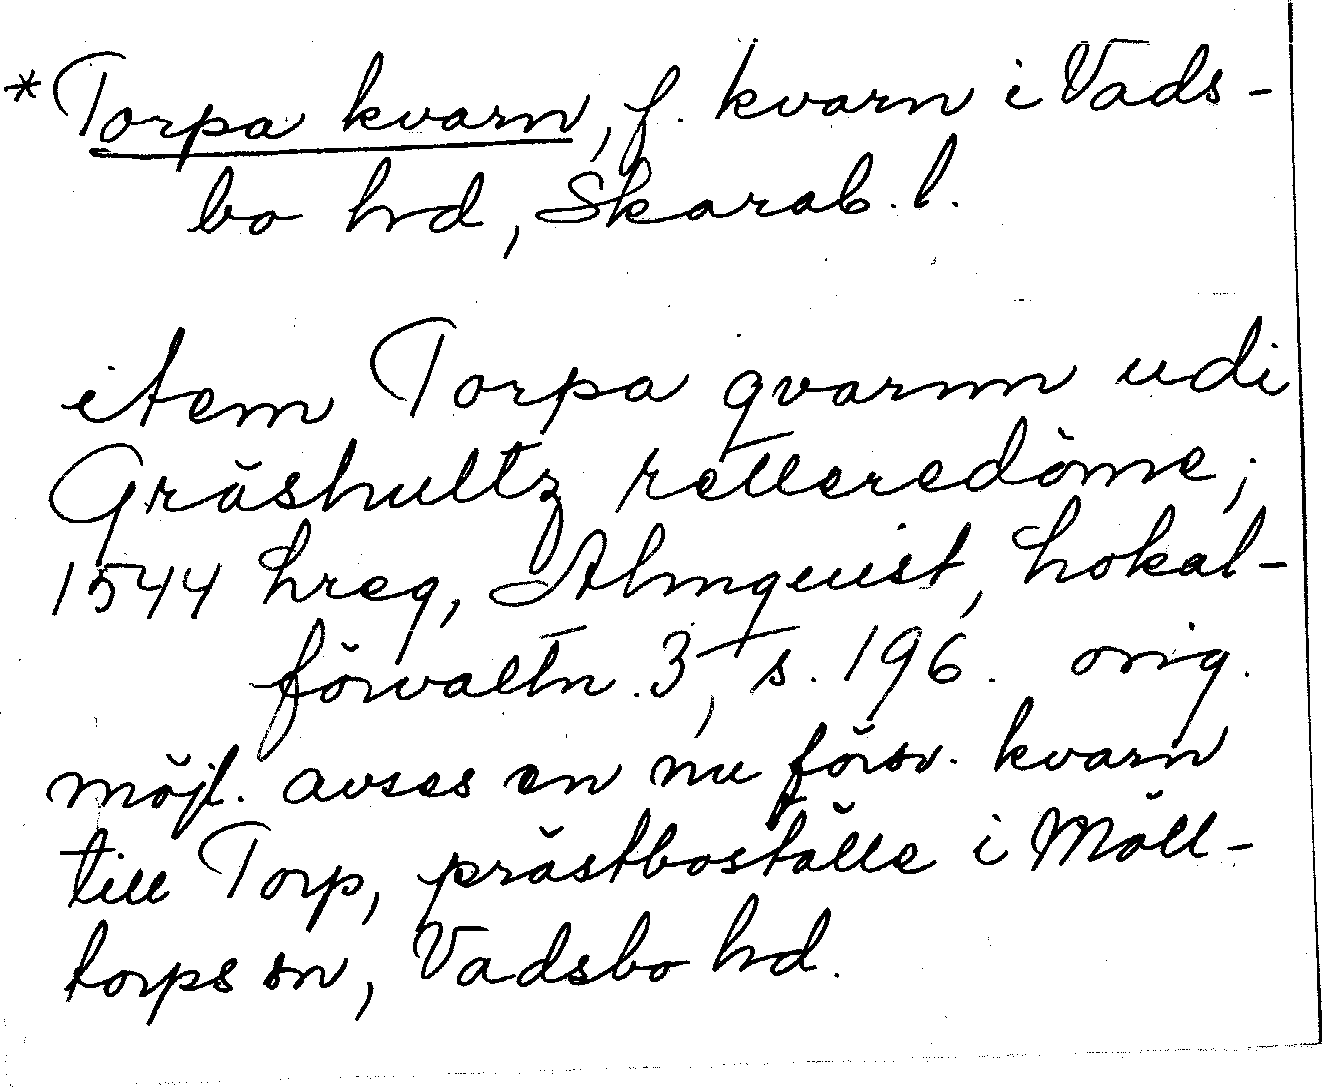 * Torpa kvarn, f. kvarn i Vads-
bo hd, Skarab. l.
item Torpa qvarnn udi
Gräshultz retteredöme;
1544 hreg, Almquist, Lokal-
förvaltn. 3, s. 196. orig.
möjl. avses en nu försv. kvarn
till Torp, prästboställe i Möll-
torps sn, Vadsbo hd.